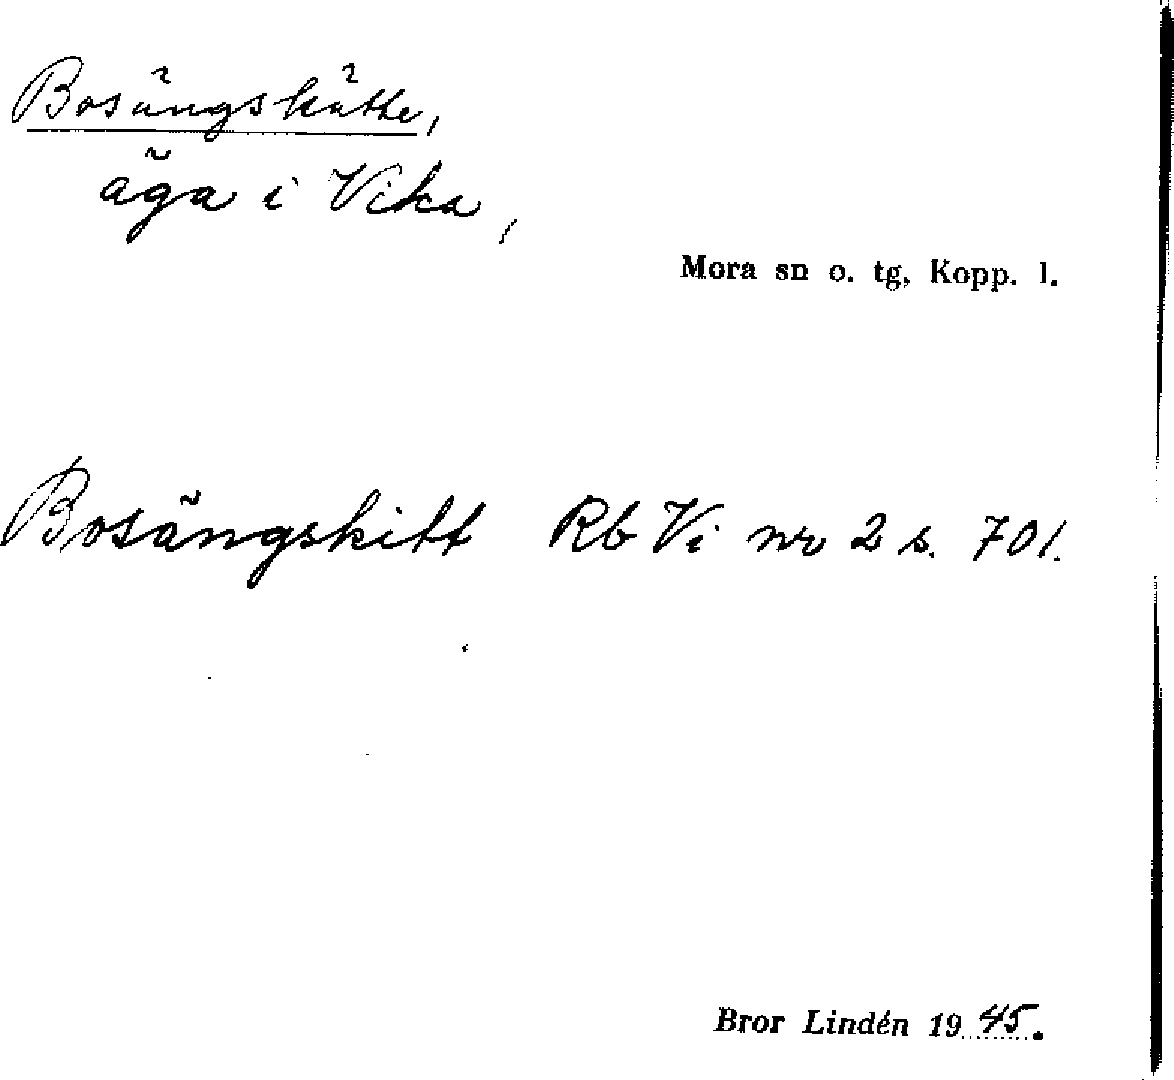 Bosängskätte,
äga i Vika,
Mora sn o. tg, Kopp. l.
Bosängskitt Rb Vi nr 2 s. 701.
Bror Lindén 1945.